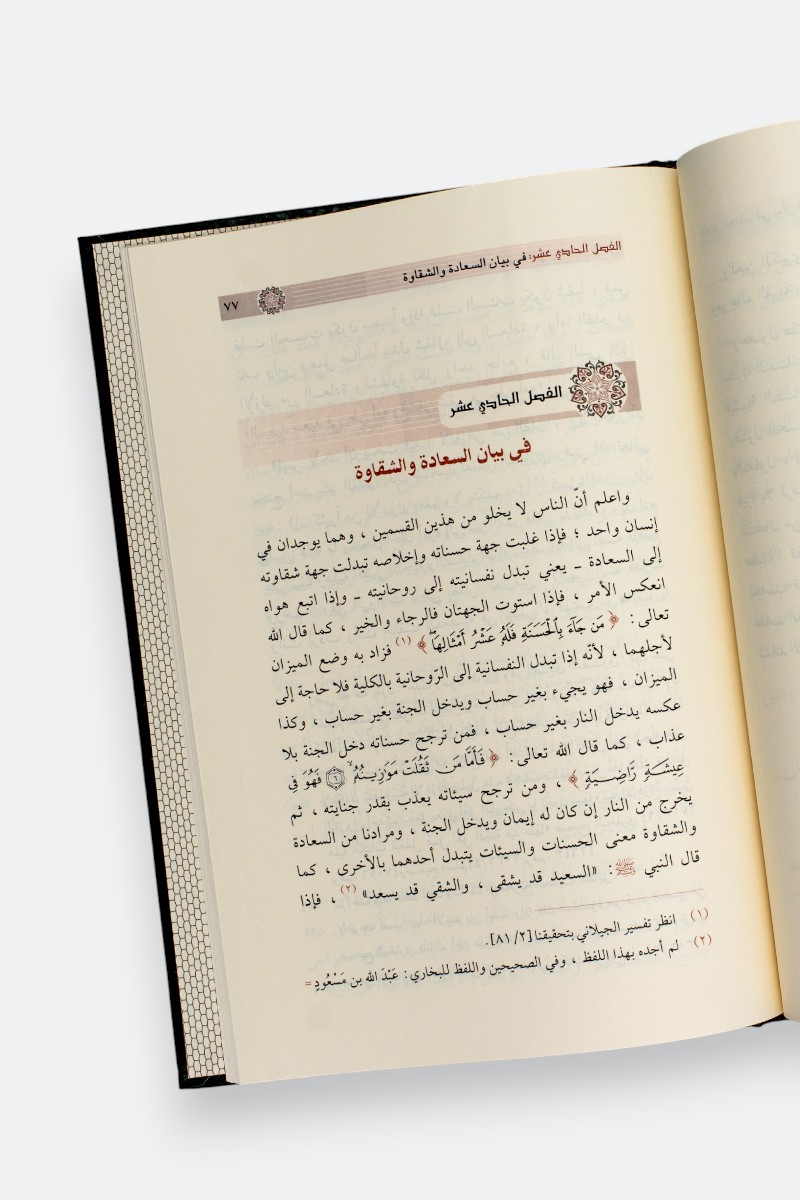 الفصل الحادي عشر: في بيان السعادة والشقاوة ٧٧
الفصل الحادي عشر
في بيان السعادة والشقاوة
واعلم أنّ الناس لا يخلو من هذين القسمين ، وهما يوجدان في
إنسان واحد ؛ فإذا غلبت جهة حسناته وإخلاصه تبدلت جهة شقاوته
إلى السعادة ـ يعني تبدل نفسانيته إلى روحانيته ـ وإذا اتبع هواه
انعكس الأمر ، فإذا استوت الجهتان فالرجاء والخير ، كما قال الله
تعالى : ﴿ مَن جَآءَ بِٱلْحَسَنَةِ فَلَهُۥ عَشْرُ أَمْثَالِهَاۖ ﴾ (١) فزاد به وضع الميزان
لأجلهما ، لأنّه إذا تبدل النفسانية إلى الرّوحانية بالكلية فلا حاجة إلى
الميزان ، فهو يجيء بغير حساب ويدخل الجنة بغير حساب ، وكذا
عكسه يدخل النار بغير حساب ، فمن ترجح حسناته دخل الجنة بلا
عذاب ، كما قال الله تعالى : ﴿ فَأَمَّا مَن ثَقُلَتْ مَوَٰزِينُهُۥ ۙ ٦ فَهُوَ فِى
عِيشَةٍ رَّاضِيَةٍ ﴾ ، ومن ترجح سيئاته يعذب بقدر جنايته ، ثم
يخرج من النار إن كان له إيمان ويدخل الجنة ، ومرادنا من السعادة
والشقاوة معنى الحسنات والسيئات يتبدل أحدهما بالأخرى ، كما
قال النبي ﷺ : «السعيد قد يشقى ، والشقي قد يسعد» (٢) ، فإذا
(١) انظر تفسير الجيلاني بتحقيقنا [٢/ ٨١].
(٢) لم أجده بهذا اللفظ ، وفي الصحيحين واللفظ للبخاري : عَبْدَ الله بن مَسْعُودٍ =